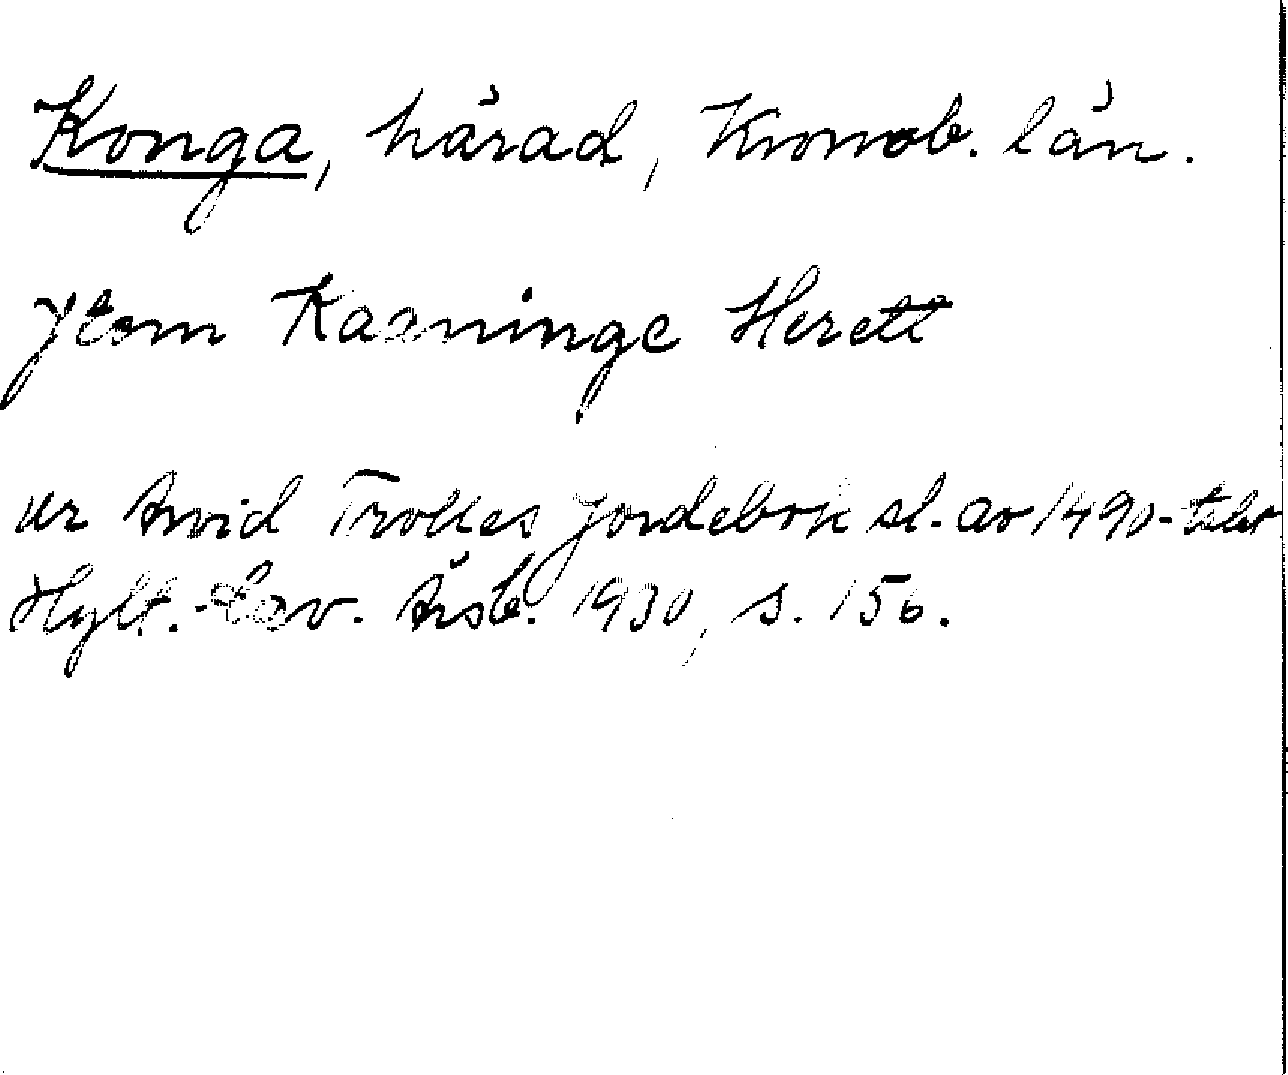 Konga, härad, Kronob. län.
Jtem Kaaninge Herett
ur Arvid Trolles Jordebok sl. av 1490-talet
Hylt.-Cav. Årsb. 1930, s. 156.